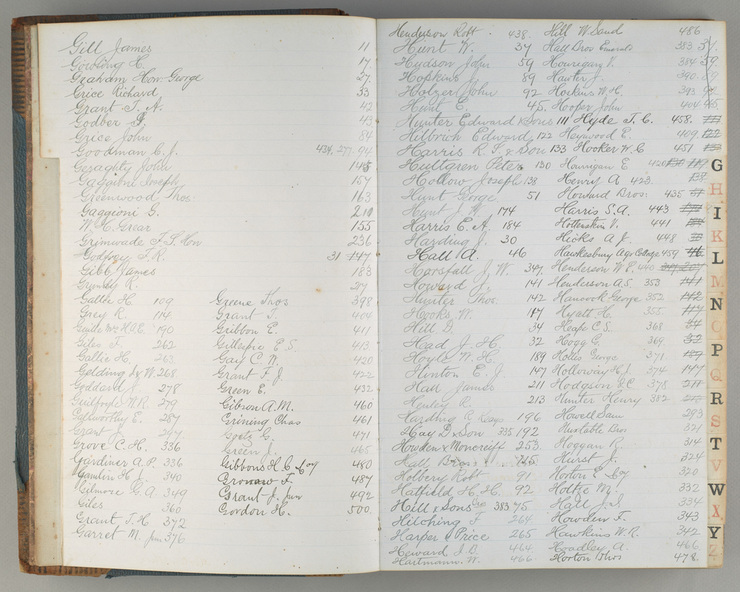 Gill James 11
Gowling H. 17
Graham Hon George 27
Grice Richard 33
Grant T. A. 42
Godber J. 43
Grice John 84
Goodman C. J. 434, 277, 94
Geraghty John 145
Gaggioni Joseph 157
Greenwood Thos 163
Gaggioni G. 210
W. H. Grear 155
Grimwade F. S. Hon 236
Godfrey F. R. 31 147
Gibb James 183
Gurney R. 217
Galth H. 109 Greene Thos 398
Grey R. 114 Grant T. 404
190 Gribbon E. 411
Giles F. 262 Gillespie E S. 413
Gallie H. 263 Gay C. W. 420
Golding J & W 268 Grant F. J. 422
Goddard J. 278 Green E. 432
Guilfoyle W. R. 279 Gibson A. M. 460
Galsworthy E. 287 Grining Chas 461
Grant J. 297 Goetz C. 471
Grove C. H. 336 Green J. 465
Gardiner A. P. 336 Gibbons H. C. & Coy 480
Gamlin H. J. 340 Gronow F. 487
Gilmore G. A. 349 Grant J. Jun 492
Giles 360 Gordon H. 500
Grant T. H. 372
Garret M. Jun 376
Henderson Robt. 438. Hill W. Saml 486
Hunt W. 37 Hall Bros 383
Hudson John 59 Hourigan P. 384
Hopkins J. 89 Hunter J. 390
Holzer John 92 Horkins W. H. 393
Hunt E. 45. Hooper John 404
Hunter Edward & Sons 111 Hyde T. C. 458.
Helbrick Edward 122 Heywood E. 409
Harris R. J. & Son 133 Hooker W. C. 451
Hultgren Peter 130 Hourigan E. 420
Hollow Joseph 138 Henry A. 423. 138
Hunt George 51 Howard Bros. 435
Hunt J. 174 Harris S. A. 443
Harris E. A. 184 Hottenstein P. 441
Harding J. 30 Hicks A. J. 448
Hall A. 46 Hawkesbury Agr College 459
Marshall J. W. 347. Henderson W. E. 440
Howard J. 141 Henderson A. S. 353
Hunter Thos. 142 Hancock George 352
Hooks W. 147 Hyatt H. 355
Hill G. 34 Heape C. S. 368
Head J. H. 32 Hogg G. 369
Hoyle W. H. 189 Holles George 371
Hinton E. J. 147 Holloway H. J. 374
Hall James 211 Hodgson J. C. 378
Henley R. 213 Hunter Henry 382
Harding G. 196 Howell Sam 293
Hay D & Son 235/192 Huxtable Bros 321
Howden & Moncreiff 253 Hoggan R. 314
Hall Bros. Hurst J. 324
Holbery Robt 91 Horton E. & Coy 320
Hatfield H. H. 92 Holtze M. 332
Hill & Sons 383 75 Hall J. S. 334
Hitching F. 264 Howden F. 343
Harper & Price 265 Hawkins W. R. 342
Heward J. O. 464 Hoadley A. 466
Hartmann. W. 466 Horton Bros 478
G
H
I
K
L
M
N
O
P
Q
R
S
T
V
W
X
Y
Z